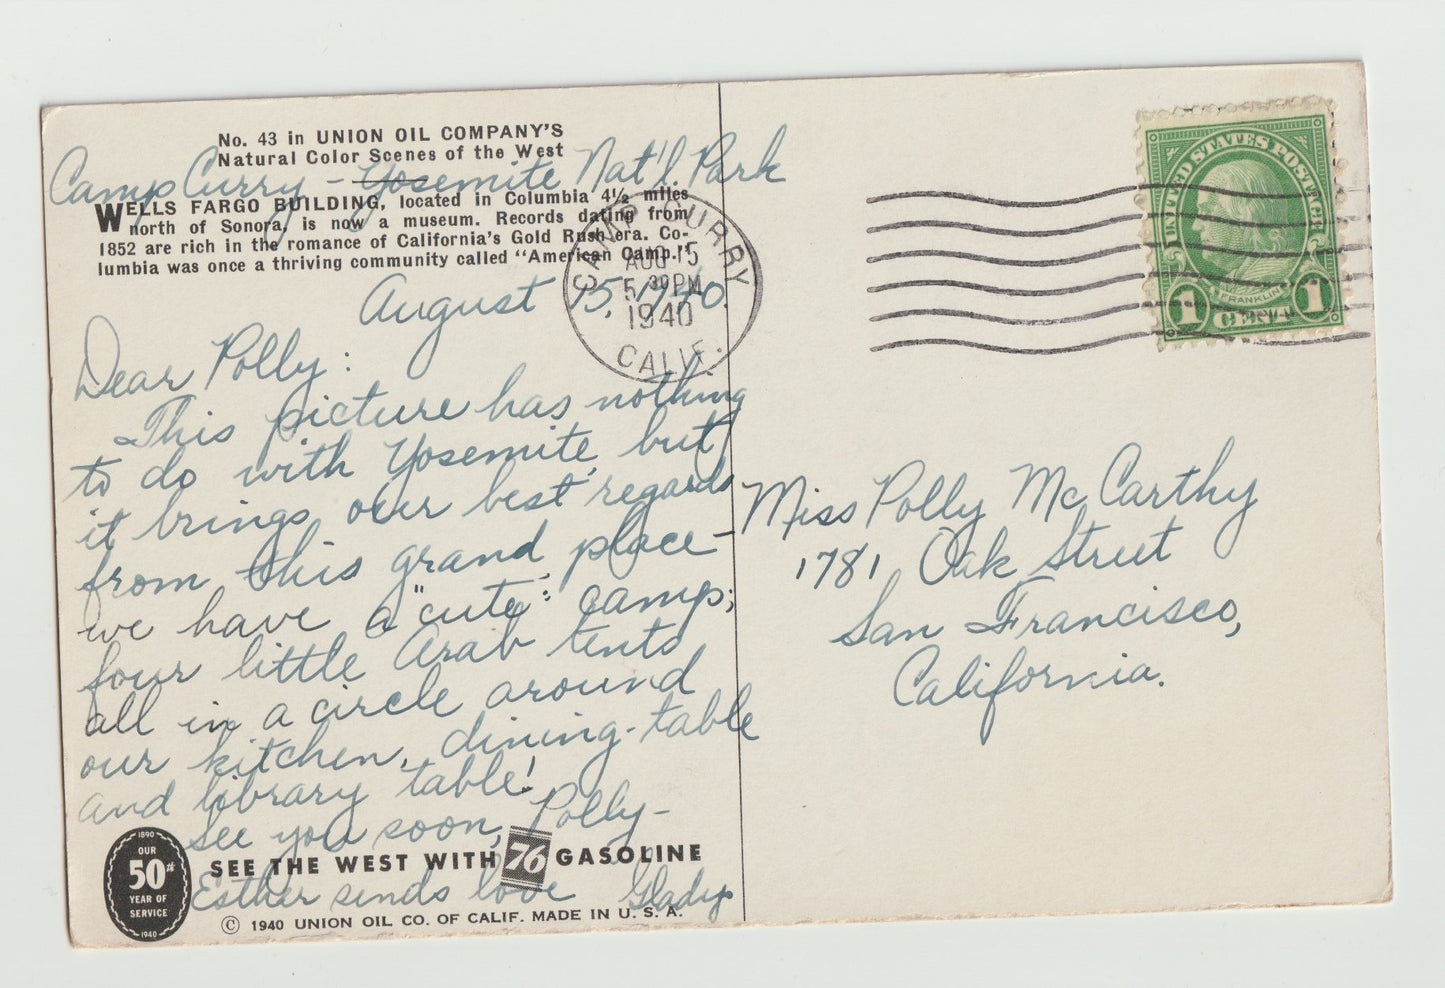 No. 43 in UNION OIL COMPANY'S
Natural Color Scenes of the West
Camp Curry - Yosemite Nat'l. Park
WELLS FARGO BUILDING, located in Columbia 4½ miles
north of Sonora, is now a museum. Records dating from
1852 are rich in the romance of California's Gold Rush era. Co-
lumbia was once a thriving community called "American Camp."
August 15, 1940.
Dear Polly:
This picture has nothing
to do with Yosemite, but
it brings our best regards
from this grand place -
we have a "cute" camp;
four little Arab tents
all in a circle around
our kitchen, dining-table
and library table!
See you soon, Polly-
Esther sends love Gladys
1890
OUR
50th
YEAR OF
SERVICE
1940
SEE THE WEST WITH 76 GASOLINE
© 1940 UNION OIL CO. OF CALIF. MADE IN U. S. A.
CAMP CURRY
AUG 15
5 30 PM
1940
CALIF.
UNITED STATES POSTAGE
FRANKLIN
1 CENT 1
Miss Polly McCarthy
1781 Oak Street
San Francisco,
California.